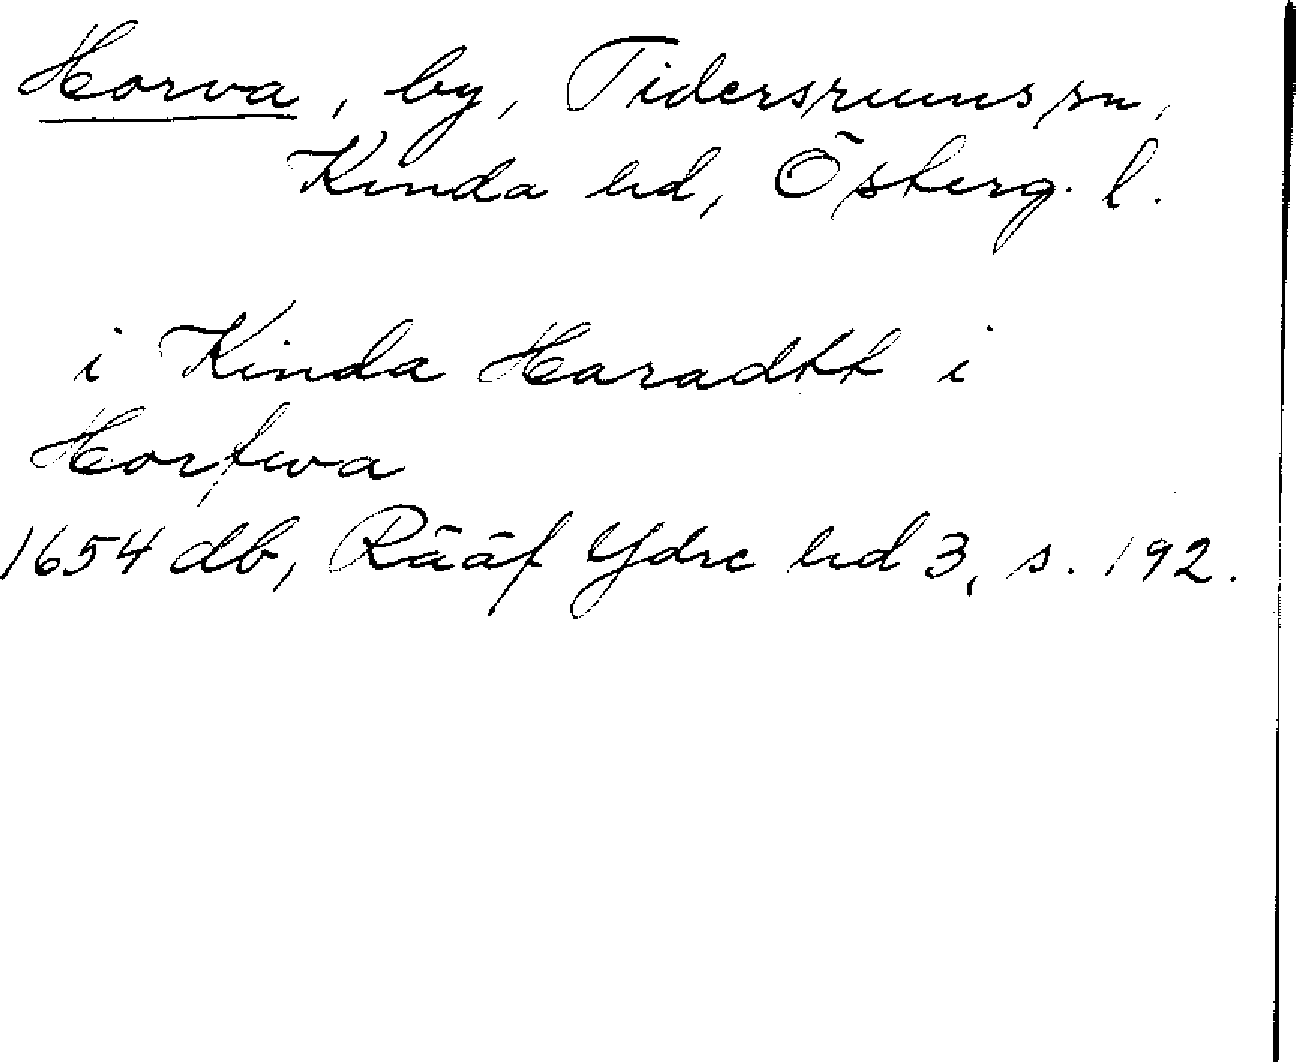 Horva, by, Tidersrums sn,
Kinda hd, Österg. l.
i Kinda Haradtt i
Horfwa
1654 db, Rääf Ydre hd 3, s. 192.